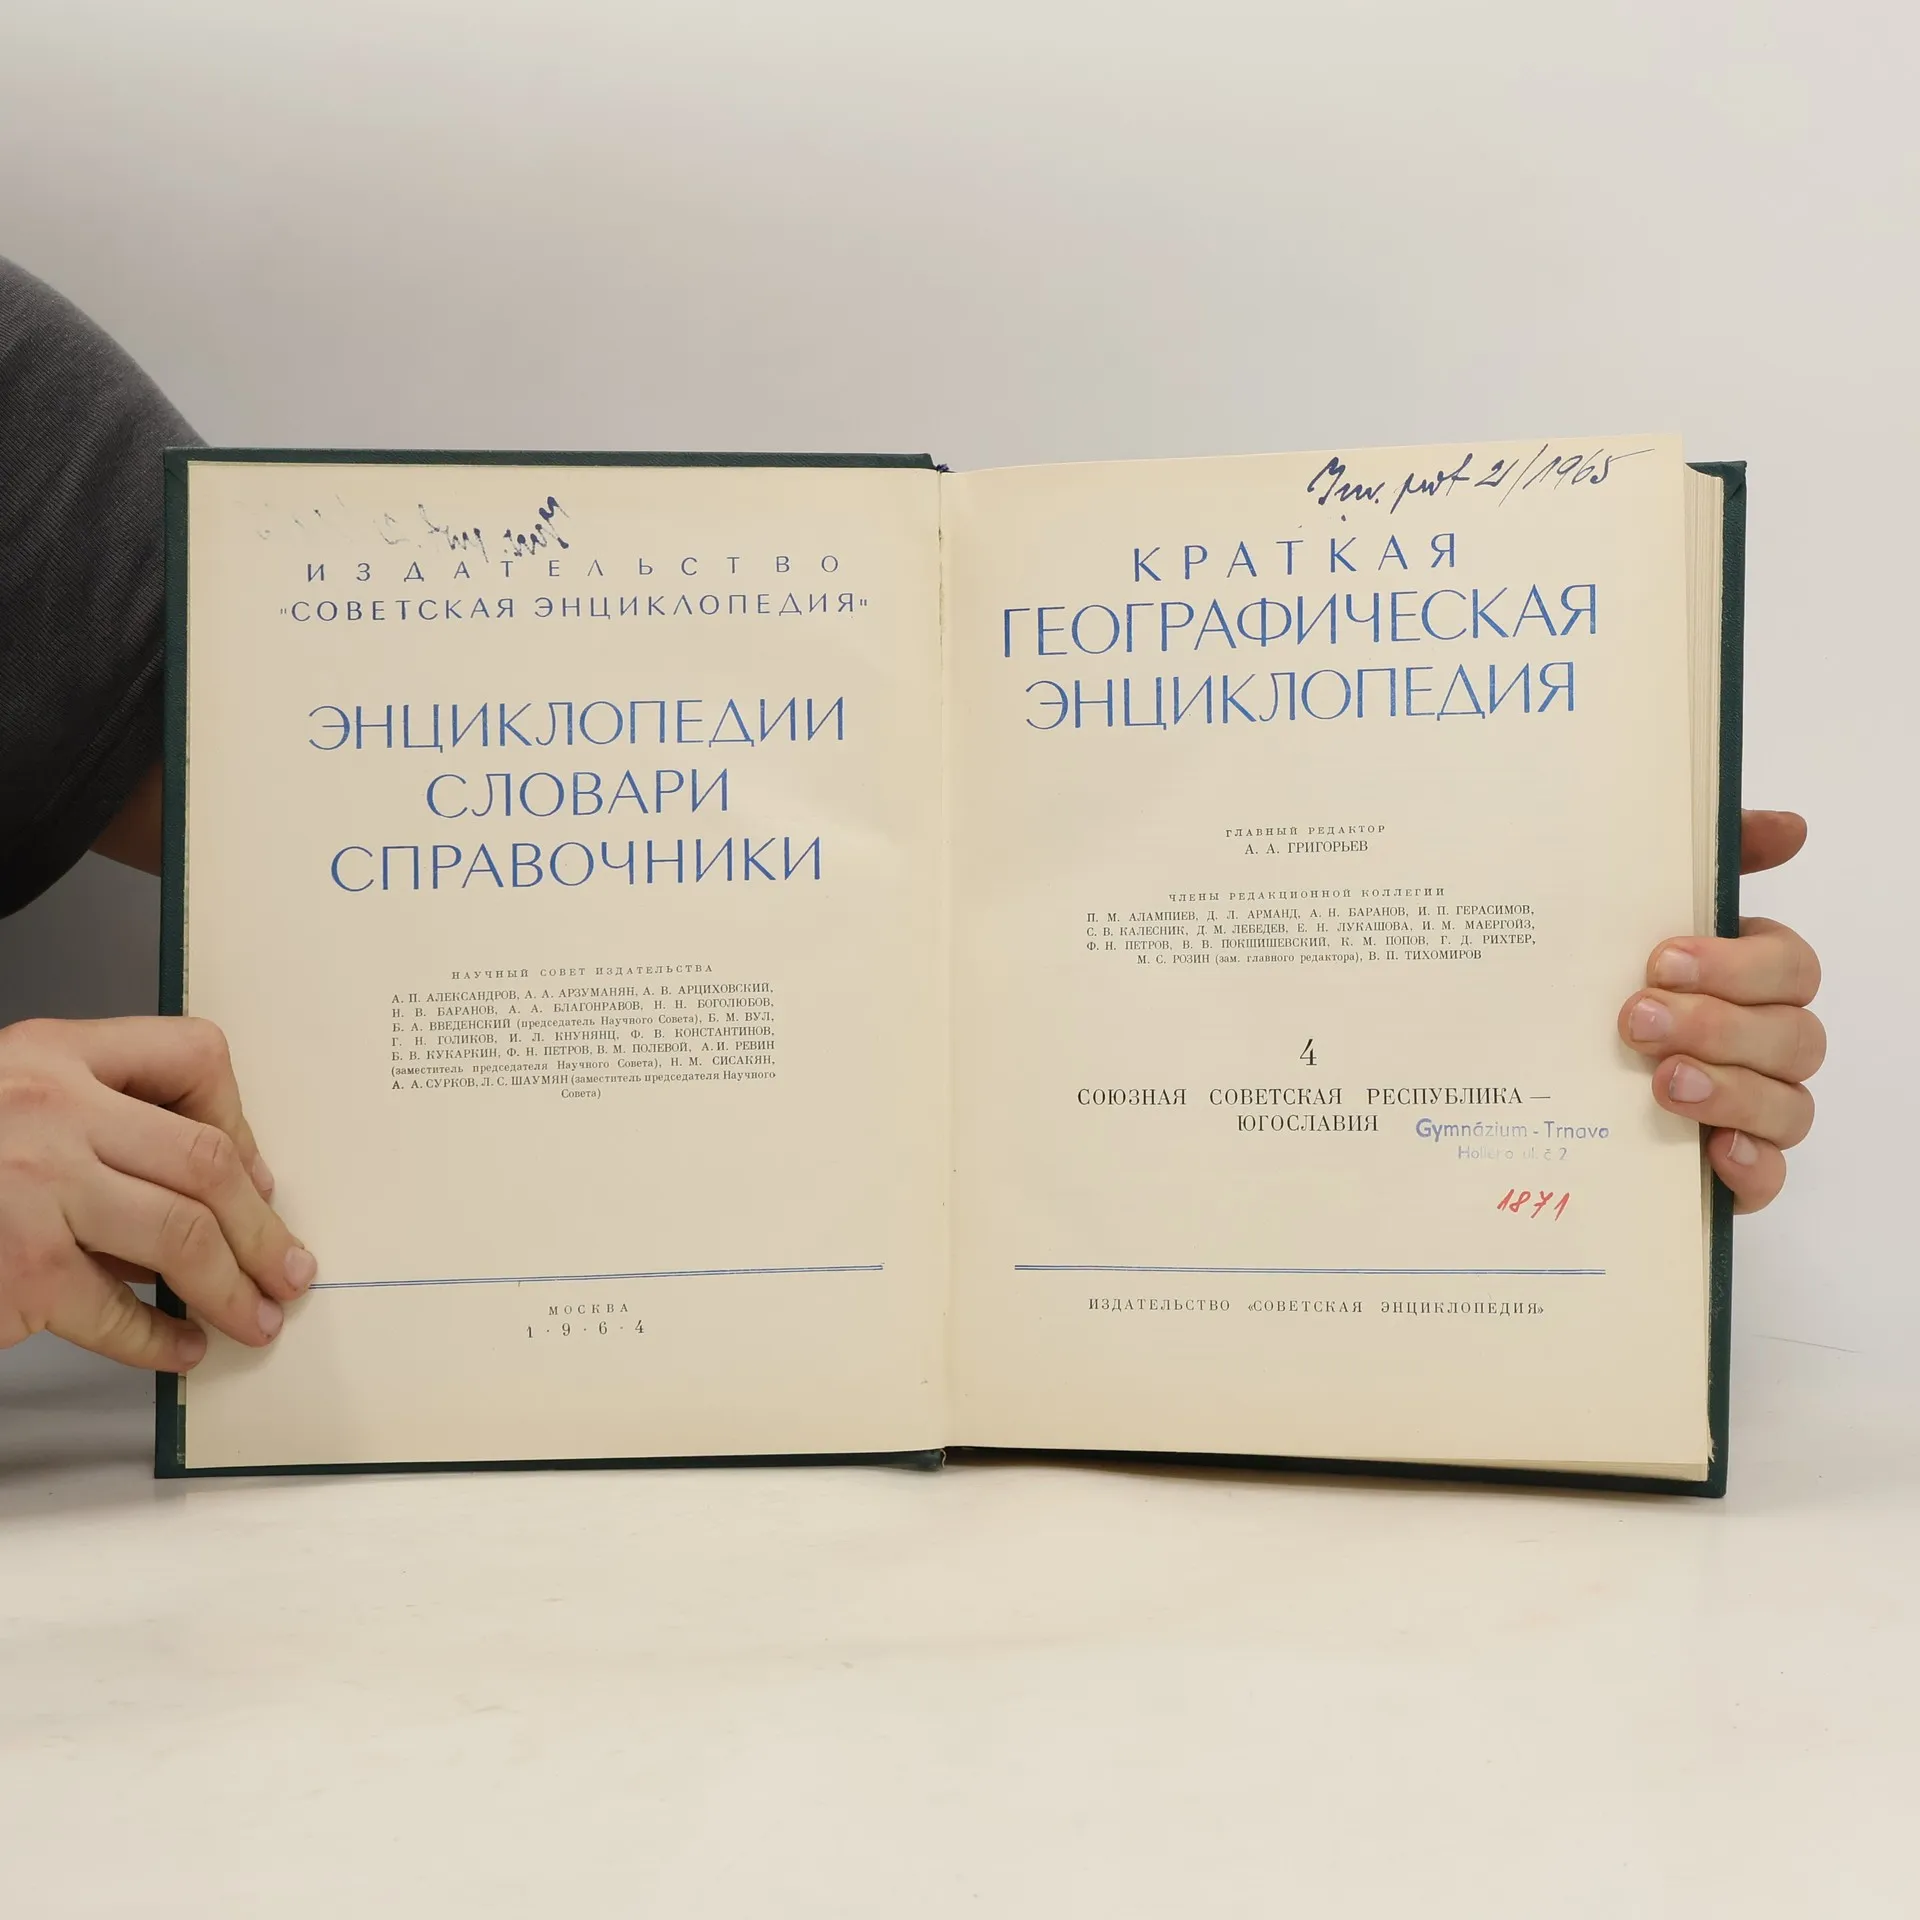 ИЗДАТЕЛЬСТВО
"СОВЕТСКАЯ ЭНЦИКЛОПЕДИЯ"
ЭНЦИКЛОПЕДИИ
СЛОВАРИ
СПРАВОЧНИКИ
НАУЧНЫЙ СОВЕТ ИЗДАТЕЛЬСТВА
А. П. АЛЕКСАНДРОВ, А. А. АРЗУМАНЯН, А. В. АРЦИХОВСКИЙ,
Н. В. БАРАНОВ, А. А. БЛАГОНРАВОВ, Н. Н. БОГОЛЮБОВ,
Б. А. ВВЕДЕНСКИЙ (председатель Научного Совета), Б. М. ВУЛ,
Г. Н. ГОЛИКОВ, И. Л. КНУНЯНЦ, Ф. В. КОНСТАНТИНОВ,
Б. В. КУКАРКИН, Ф. Н. ПЕТРОВ, В. М. ПОЛЕВОЙ, А. И. РЕВИН
(заместитель председателя Научного Совета), Н. М. СИСАКЯН,
А. А. СУРКОВ, Л. С. ШАУМЯН (заместитель председателя Научного
Совета)
МОСКВА
1 · 9 · 6 · 4
Inv. 21/1965
КРАТКАЯ
ГЕОГРАФИЧЕСКАЯ
ЭНЦИКЛОПЕДИЯ
ГЛАВНЫЙ РЕДАКТОР
А. А. ГРИГОРЬЕВ
ЧЛЕНЫ РЕДАКЦИОННОЙ КОЛЛЕГИИ
П. М. АЛАМПИЕВ, Д. Л. АРМАНД, А. Н. БАРАНОВ, И. П. ГЕРАСИМОВ,
С. В. КАЛЕСНИК, Д. М. ЛЕБЕДЕВ, Е. Н. ЛУКАШОВА, И. М. МАЕРГОЙЗ,
Ф. Н. ПЕТРОВ, В. В. ПОКШИШЕВСКИЙ, К. М. ПОПОВ, Г. Д. РИХТЕР,
М. С. РОЗИН (зам. главного редактора), В. П. ТИХОМИРОВ
4
СОЮЗНАЯ СОВЕТСКАЯ РЕСПУБЛИКА —
ЮГОСЛАВИЯ
Gymnázium - Trnava
ul. č 2
1871
ИЗДАТЕЛЬСТВО «СОВЕТСКАЯ ЭНЦИКЛОПЕДИЯ»